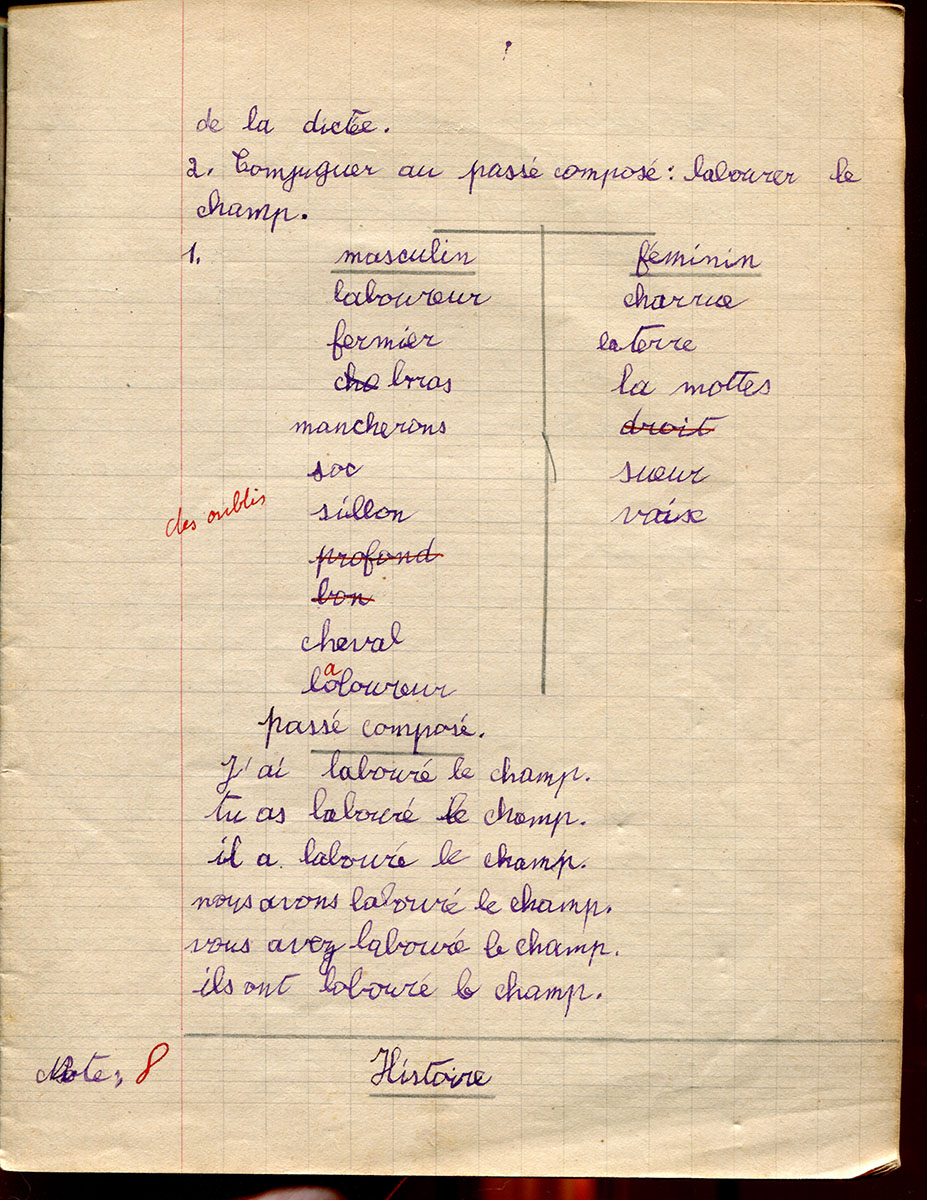 de la dictée.
2. Conjuguer au passé composé: labourer le
champ.
1. masculin féminin
laboureur charrue
fermier la terre
cha bras la mottes
mancherons droit
soc sueur
des oublis sillon vaix
profond
bon
cheval
laboureur
passé composé.
J'ai labouré le champ.
tu as labouré le champ.
il a labouré le champ.
nous avons labouré le champ.
vous avez labouré le champ.
ils ont labouré le champ.
Note: 8 Histoire